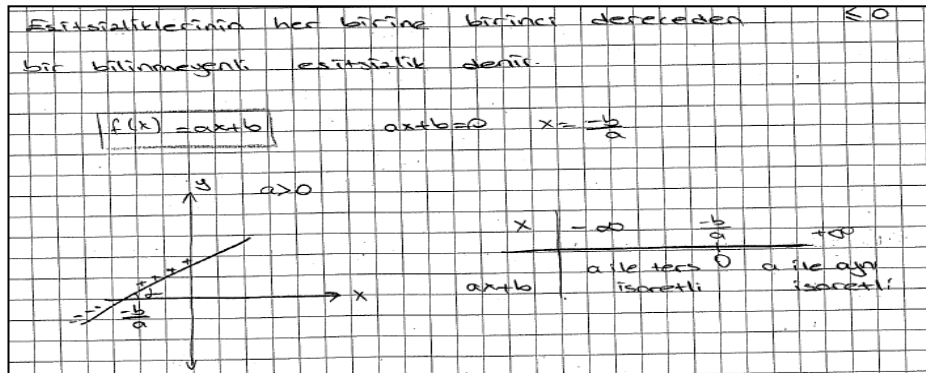 Eşitsizliklerinin her birine birinci dereceden ≤ 0
bir bilinmeyenli eşitsizlik denir.
f(x) = ax+b ax+b=0 x = -b/a
y a>0
x -∞ -b/a +∞
ax+b a ile ters işaretli 0 a ile aynı işaretli
+ + + +
α
x
- - - -
-b/a